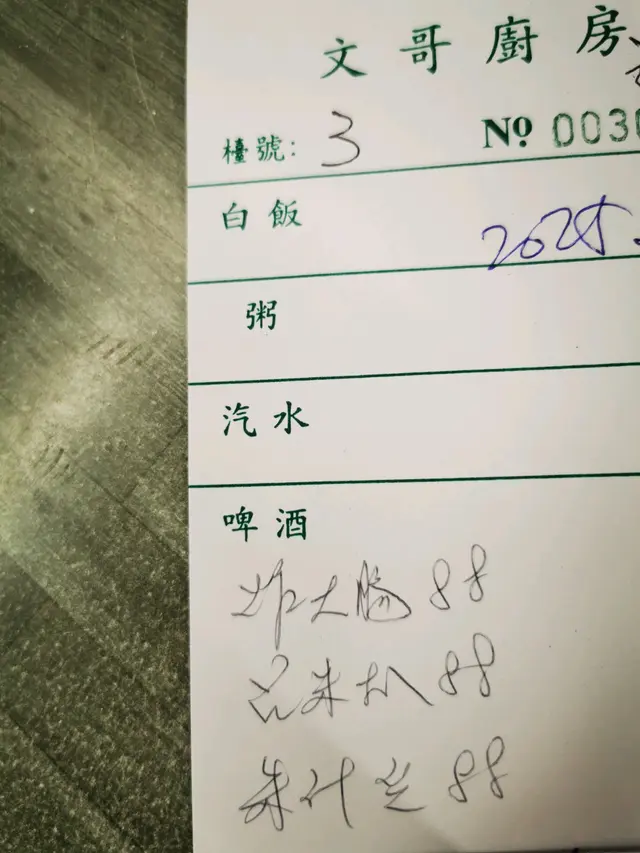 文哥廚房
檯號: 3 Nº 0030
白飯 2025.
粥
汽水
啤酒
炸大腸 88
朱扒 88
朱什 88